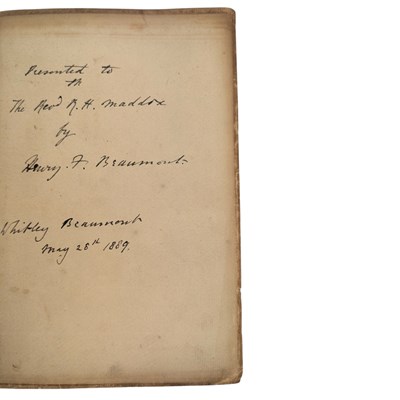 Presented to
The Revd R. H. Maddox
by
Henry. F. Beaumont
Whitley Beaumont
May 28th 1889.